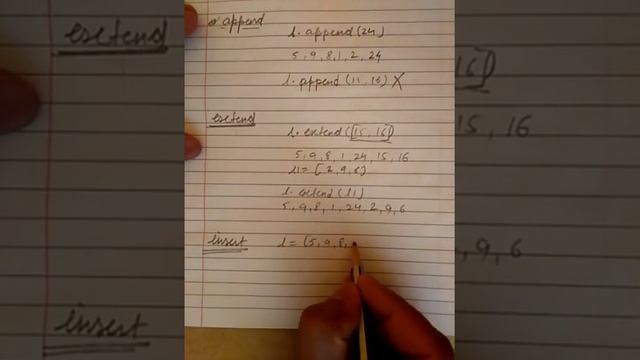 append
l. append(24)
5, 9, 8, 1, 2, 24
l. append(11, 16) X
extend
l. extend([15, 16])
5, 9, 8, 1, 24, 15, 16
l1 = [2, 9, 6]
l. extend(l1)
5, 9, 8, 1, 24, 2, 9, 6
insert
l = [5, 9, 8,